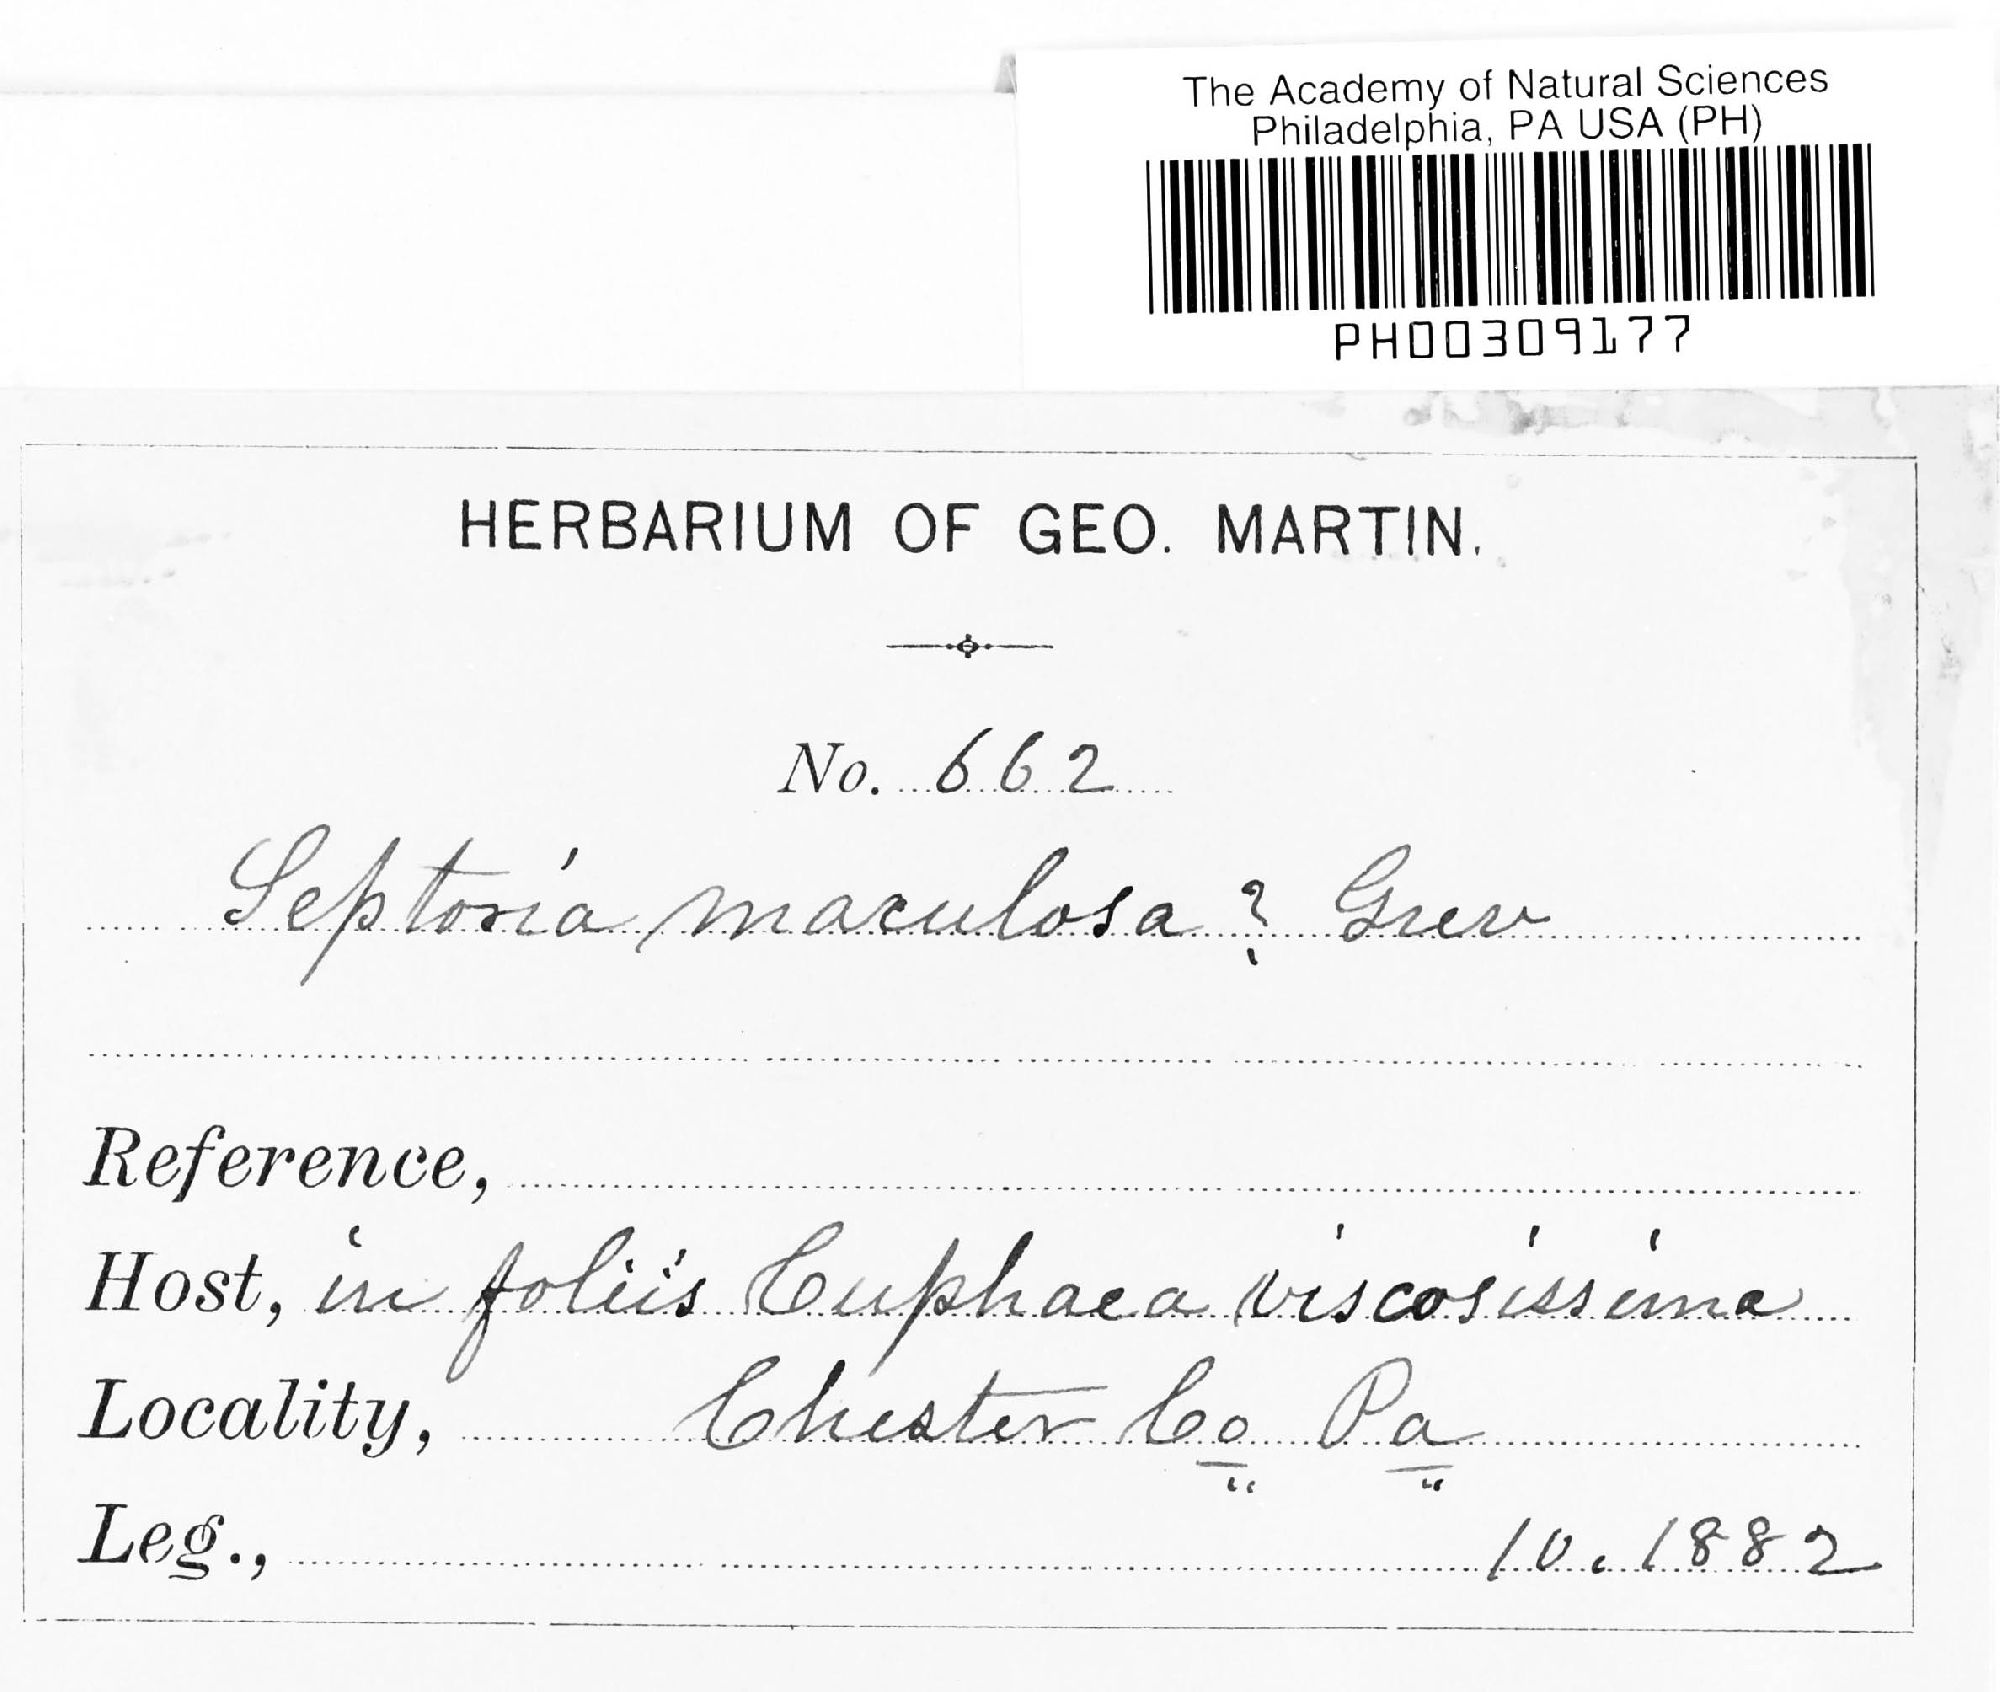 The Academy of Natural Sciences
Philadelphia, PA USA (PH)
PH00309177
HERBARIUM OF GEO. MARTIN.
No. 662
Septoria maculosa ? Grev
Reference,
Host, in foliis Cuphaea viscosissima
Locality, Chester Co Pa
Leg., 10. 1882